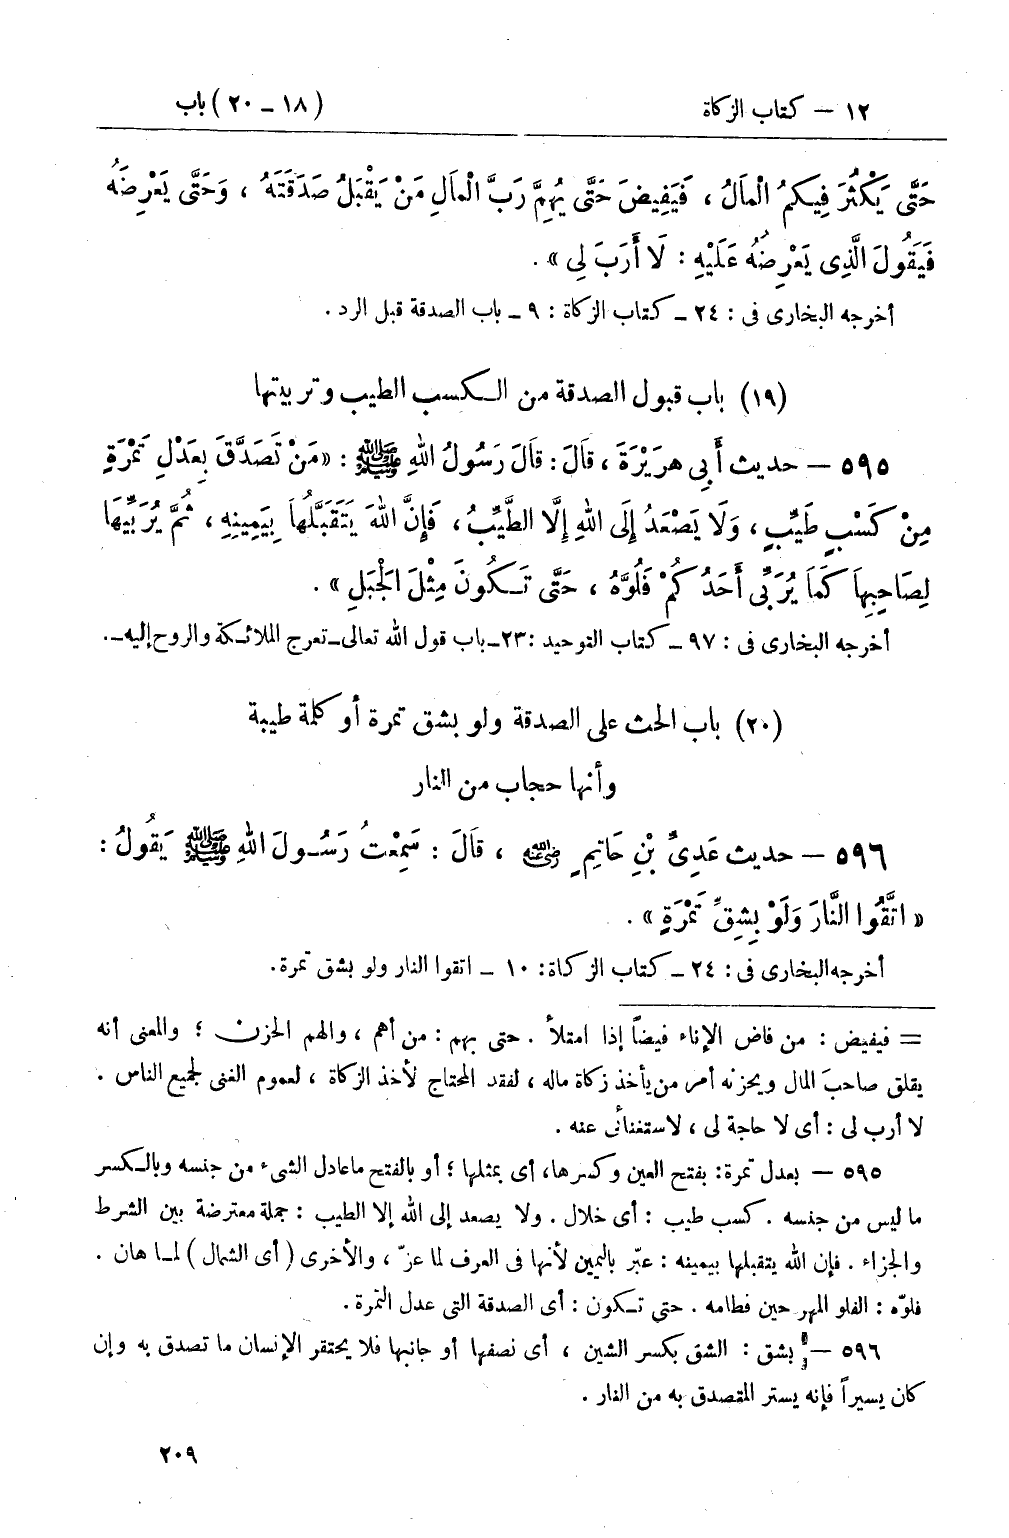 ١٢ – كتاب الزكاة (١٨ – ٢٠) باب
حَتَّى يَكْثُرَ فِيكُمُ الْمَالُ ، فَيَفِيضَ حَتَّى يُهِمَّ رَبَّ الْمَالِ مَنْ يَقْبَلُ صَدَقَتَهُ ، وَحَتَّى يَعْرِضَهُ
فَيَقُولَ الَّذِى يَعْرِضُهُ عَلَيْهِ : لَا أَرَبَ لِى » .
أخرجه البخارى فى : ٢٤ – كتاب الزكاة : ٩ – باب الصدقة قبل الرد .
(١٩) باب قبول الصدقة من الكسب الطيب وتربيتها
٥٩٥ – حديث أَبِى هرَيْرَةَ ، قَالَ : قَالَ رَسُولُ اللهِ ﷺ : «مَنْ تَصَدَّقَ بِعَدْلِ تَمْرَةٍ
مِنْ كَسْبٍ طَيِّبٍ ، وَلَا يَصْعَدُ إِلَى اللهِ إِلَّا الطَّيِّبُ ، فَإِنَّ اللهَ يَتَقَبَّلُهَا بِيَمِينِهِ ، ثُمَّ يُرَبِّيهَا
لِصَاحِبِهَا كَمَا يُرَبِّى أَحَدُكُمْ فَلُوَّهُ ، حَتَّى تَكُونَ مِثْلَ الْجَبَلِ » .
أخرجه البخارى فى : ٩٧ – كتاب التوحيد : ٢٣ – باب قول الله تعالى – تعرج الملائكة والروح إليه – .
(٢٠) باب الحث على الصدقة ولو بشق تمرة أو كلمة طيبة
وأنها حجاب من النار
٥٩٦ – حديث عَدِىِّ بْنِ حَاتِمٍ رضي الله عنه ، قَالَ : سَمِعْتُ رَسُولَ اللهِ ﷺ يَقُولُ :
« اتَّقُوا النَّارَ وَلَوْ بِشِقِّ تَمْرَةٍ » .
أخرجه البخارى فى : ٢٤ – كتاب الزكاة : ١٠ – اتقوا النار ولو بشق تمرة .
= فيفيض : من فاض الإناء فيضاً إذا امتلأ . حتى يهم : من أهم ، والهم الحزن ؛ والمعنى أنه
يقلق صاحبَ المال ويحزنه أمر من يأخذ زكاة ماله ، لفقد المحتاج لأخذ الزكاة ، لعموم الغنى لجميع الناس .
لا أرب لى : أى لا حاجة لى ، لاستغنائى عنه .
٥٩٥ – بعدل تمرة : بفتح العين وكسرها، أى بمثلها ؛ أو بالفتح ماعادل الشىء من جنسه وبالكسر
ما ليس من جنسه . كسب طيب : أى حلال . ولا يصعد إلى الله إلا الطيب : جملة معترضة بين الشرط
والجزاء . فإن الله يتقبلها بيمينه : عبّر باليمين لأنها فى العرف لما عزّ ، والأخرى ( أى الشمال ) لما هان .
فلوّه : الفلو المهر حين فطامه . حتى تكون : أى الصدقة التى عدل التمرة .
٥٩٦ – بشق : الشق بكسر الشين ، أى نصفها أو جانبها فلا يحتقر الإنسان ما تصدق به وإن
كان يسيراً فإنه يستر المتصدق به من النار .
٢٠٩